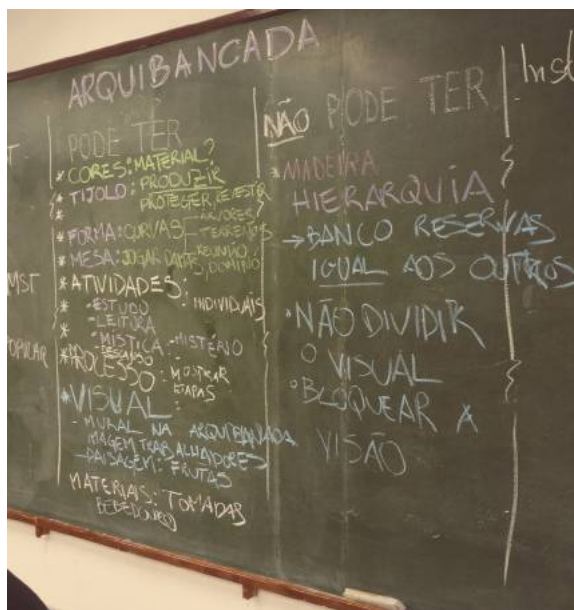 ARQUIBANCADA
PODE TER
* CORES: MATERIAL?
* TIJOLO: PRODUZIR
PROTEGER REVESTIR
* FORMA: CURVAS - ÁRVORES
- TERRENOS
* MESA: JOGAR DAMAS, REUNIÃO, DOMINÓ
* ATIVIDADES: INDIVIDUAIS
* - ESTUDO
* - LEITURA
- MÍSTICA - MISTÉRIO
- DESCANSO
* PROCESSO: MOSTRAR
ETAPAS
* VISUAL:
- MURAL NA ARQUIBANCADA
IMAGEM TRABALHADORES
- PAISAGEM: FRUTAS
MATERIAIS: TOMADAS
BEBEDOURO
NÃO PODE TER
* MADEIRA
HIERARQUIA
→ BANCO RESERVAS
IGUAL AOS OUTROS
• NÃO DIVIDIR
O VISUAL
• BLOQUEAR A
VISÃO
MST
POPULAR